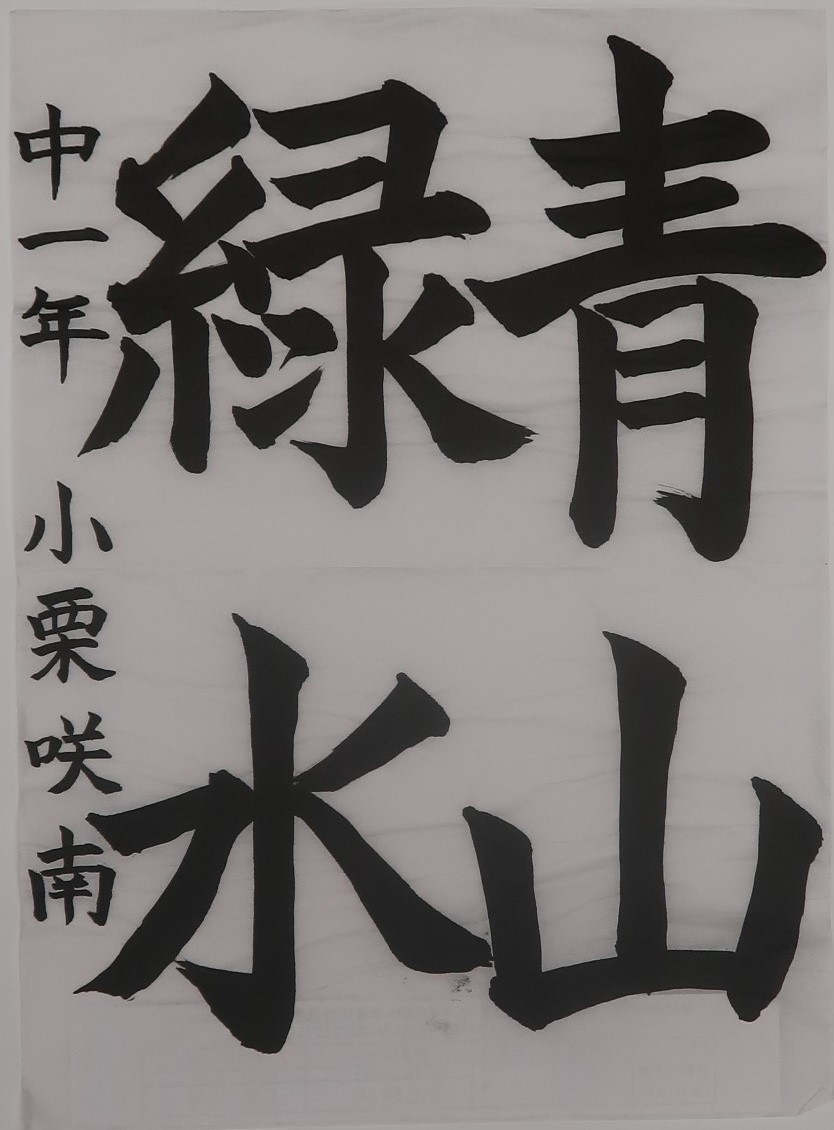 青山
緑水
中一年 小栗咲南